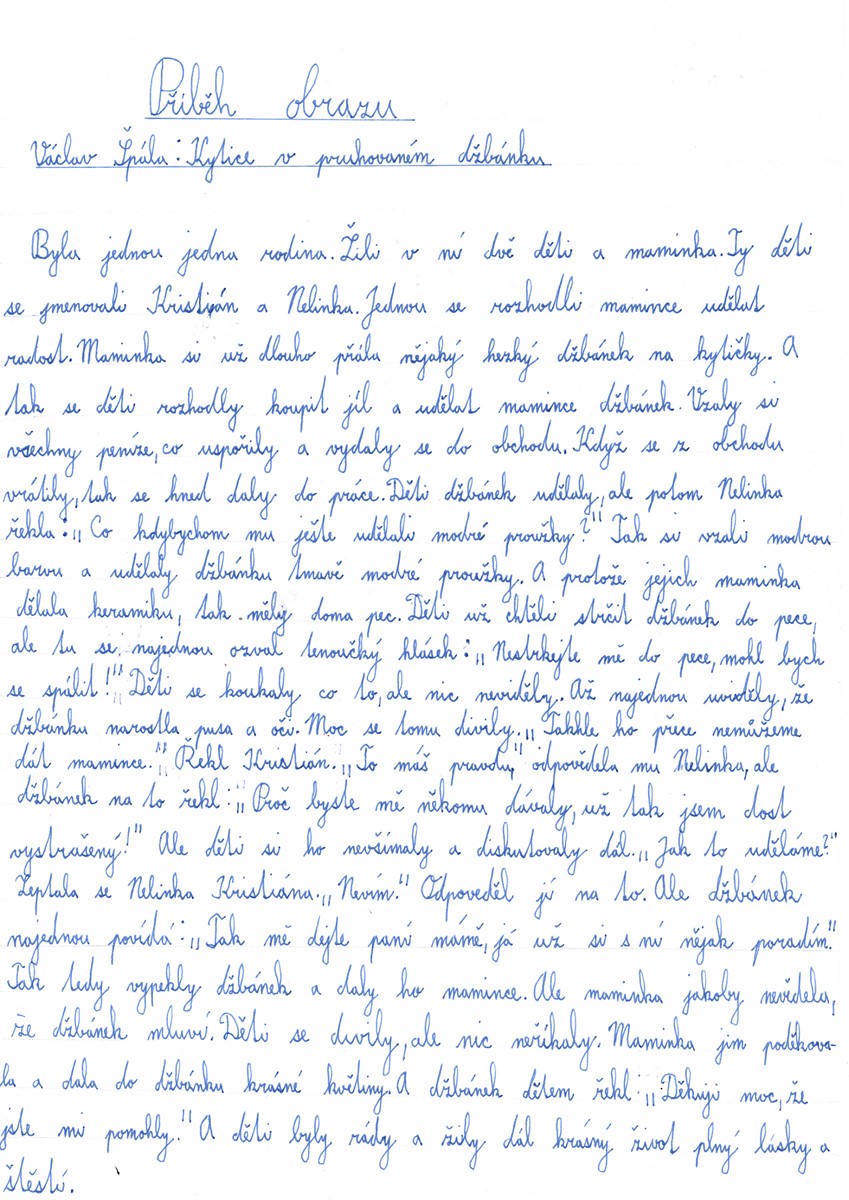 Příběh obrazu
Václav Špála: Kytice v pruhovaném džbánku
Byla jednou jedna rodina. Žili v ní dvě děti a maminka. Ty děti
se jmenovali Kristián a Nelinka. Jednou se rozhodli mamince udělat
radost. Maminka si už dlouho přála nějaký hezký džbánek na kytičky. A
tak se děti rozhodly koupit jíl a udělat mamince džbánek. Vzaly si
všechny peníze, co uspořily a vydaly se do obchodu. Když se z obchodu
vrátily, tak se hned daly do práce. Děti džbánek udělaly, ale potom Nelinka
řekla: „Co kdybychom mu ješte udělali modré proužky?" Tak si vzali modrou
barvu a udělaly džbánku tmavě modré proužky. A protože jejich maminka
dělala keramiku, tak měly doma pec. Děti už chtěli strčit džbánek do pece,
ale tu se najednou ozval tenoučký hlásek: „Nestrkejte mě do pece, mohl bych
se spálit!" Děti se koukaly co to, ale nic neviděly. Až najednou uviděly, že
džbánku narostla pusa a oči. Moc se tomu divily. „Takhle ho přece nemůžeme
dát mamince." Řekl Kristián. „To máš pravdu," odpověděla mu Nelinka, ale
džbánek na to řekl: „Proč byste mě někomu dávaly, už tak jsem dost
vystrašený!" Ale děti si ho nevšímaly a diskutovaly dál. „Jak to uděláme?"
Zeptala se Nelinka Kristiána. „Nevím." Odpověděl jí na to. Ale džbánek
najednou povídá: „Tak mě dejte paní mámě, já už si s ní nějak poradím."
Tak tedy vypekly džbánek a daly ho mamince. Ale maminka jakoby nevěděla,
že džbánek mluví. Děti se divily, ale nic neříkaly. Maminka jim poděkova-
la a dala do džbánku krásné květiny. A džbánek dětem řekl: „Děkuji moc, že
jste mi pomohly." A děti byly rády a žily dál krásný život plný lásky a
štěstí.